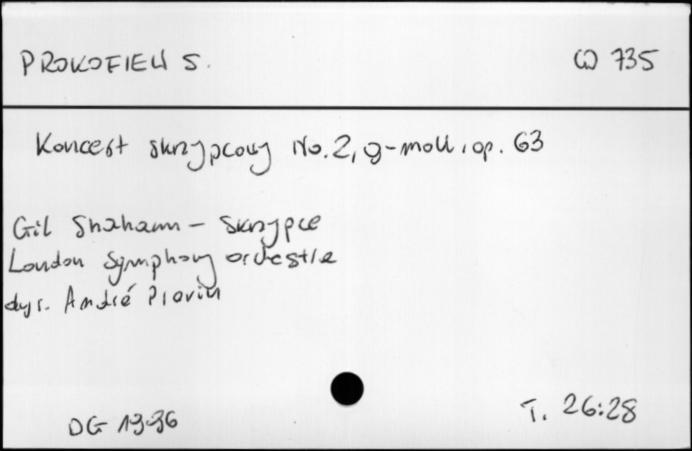 PROKOFIEW S. CD 735
Koncert skrzypcowy No. 2, g-moll, op. 63
Gil Shaham - skrzypce
London Symphony orchestra
dyr. André Previn
T. 26:28
DG 1996